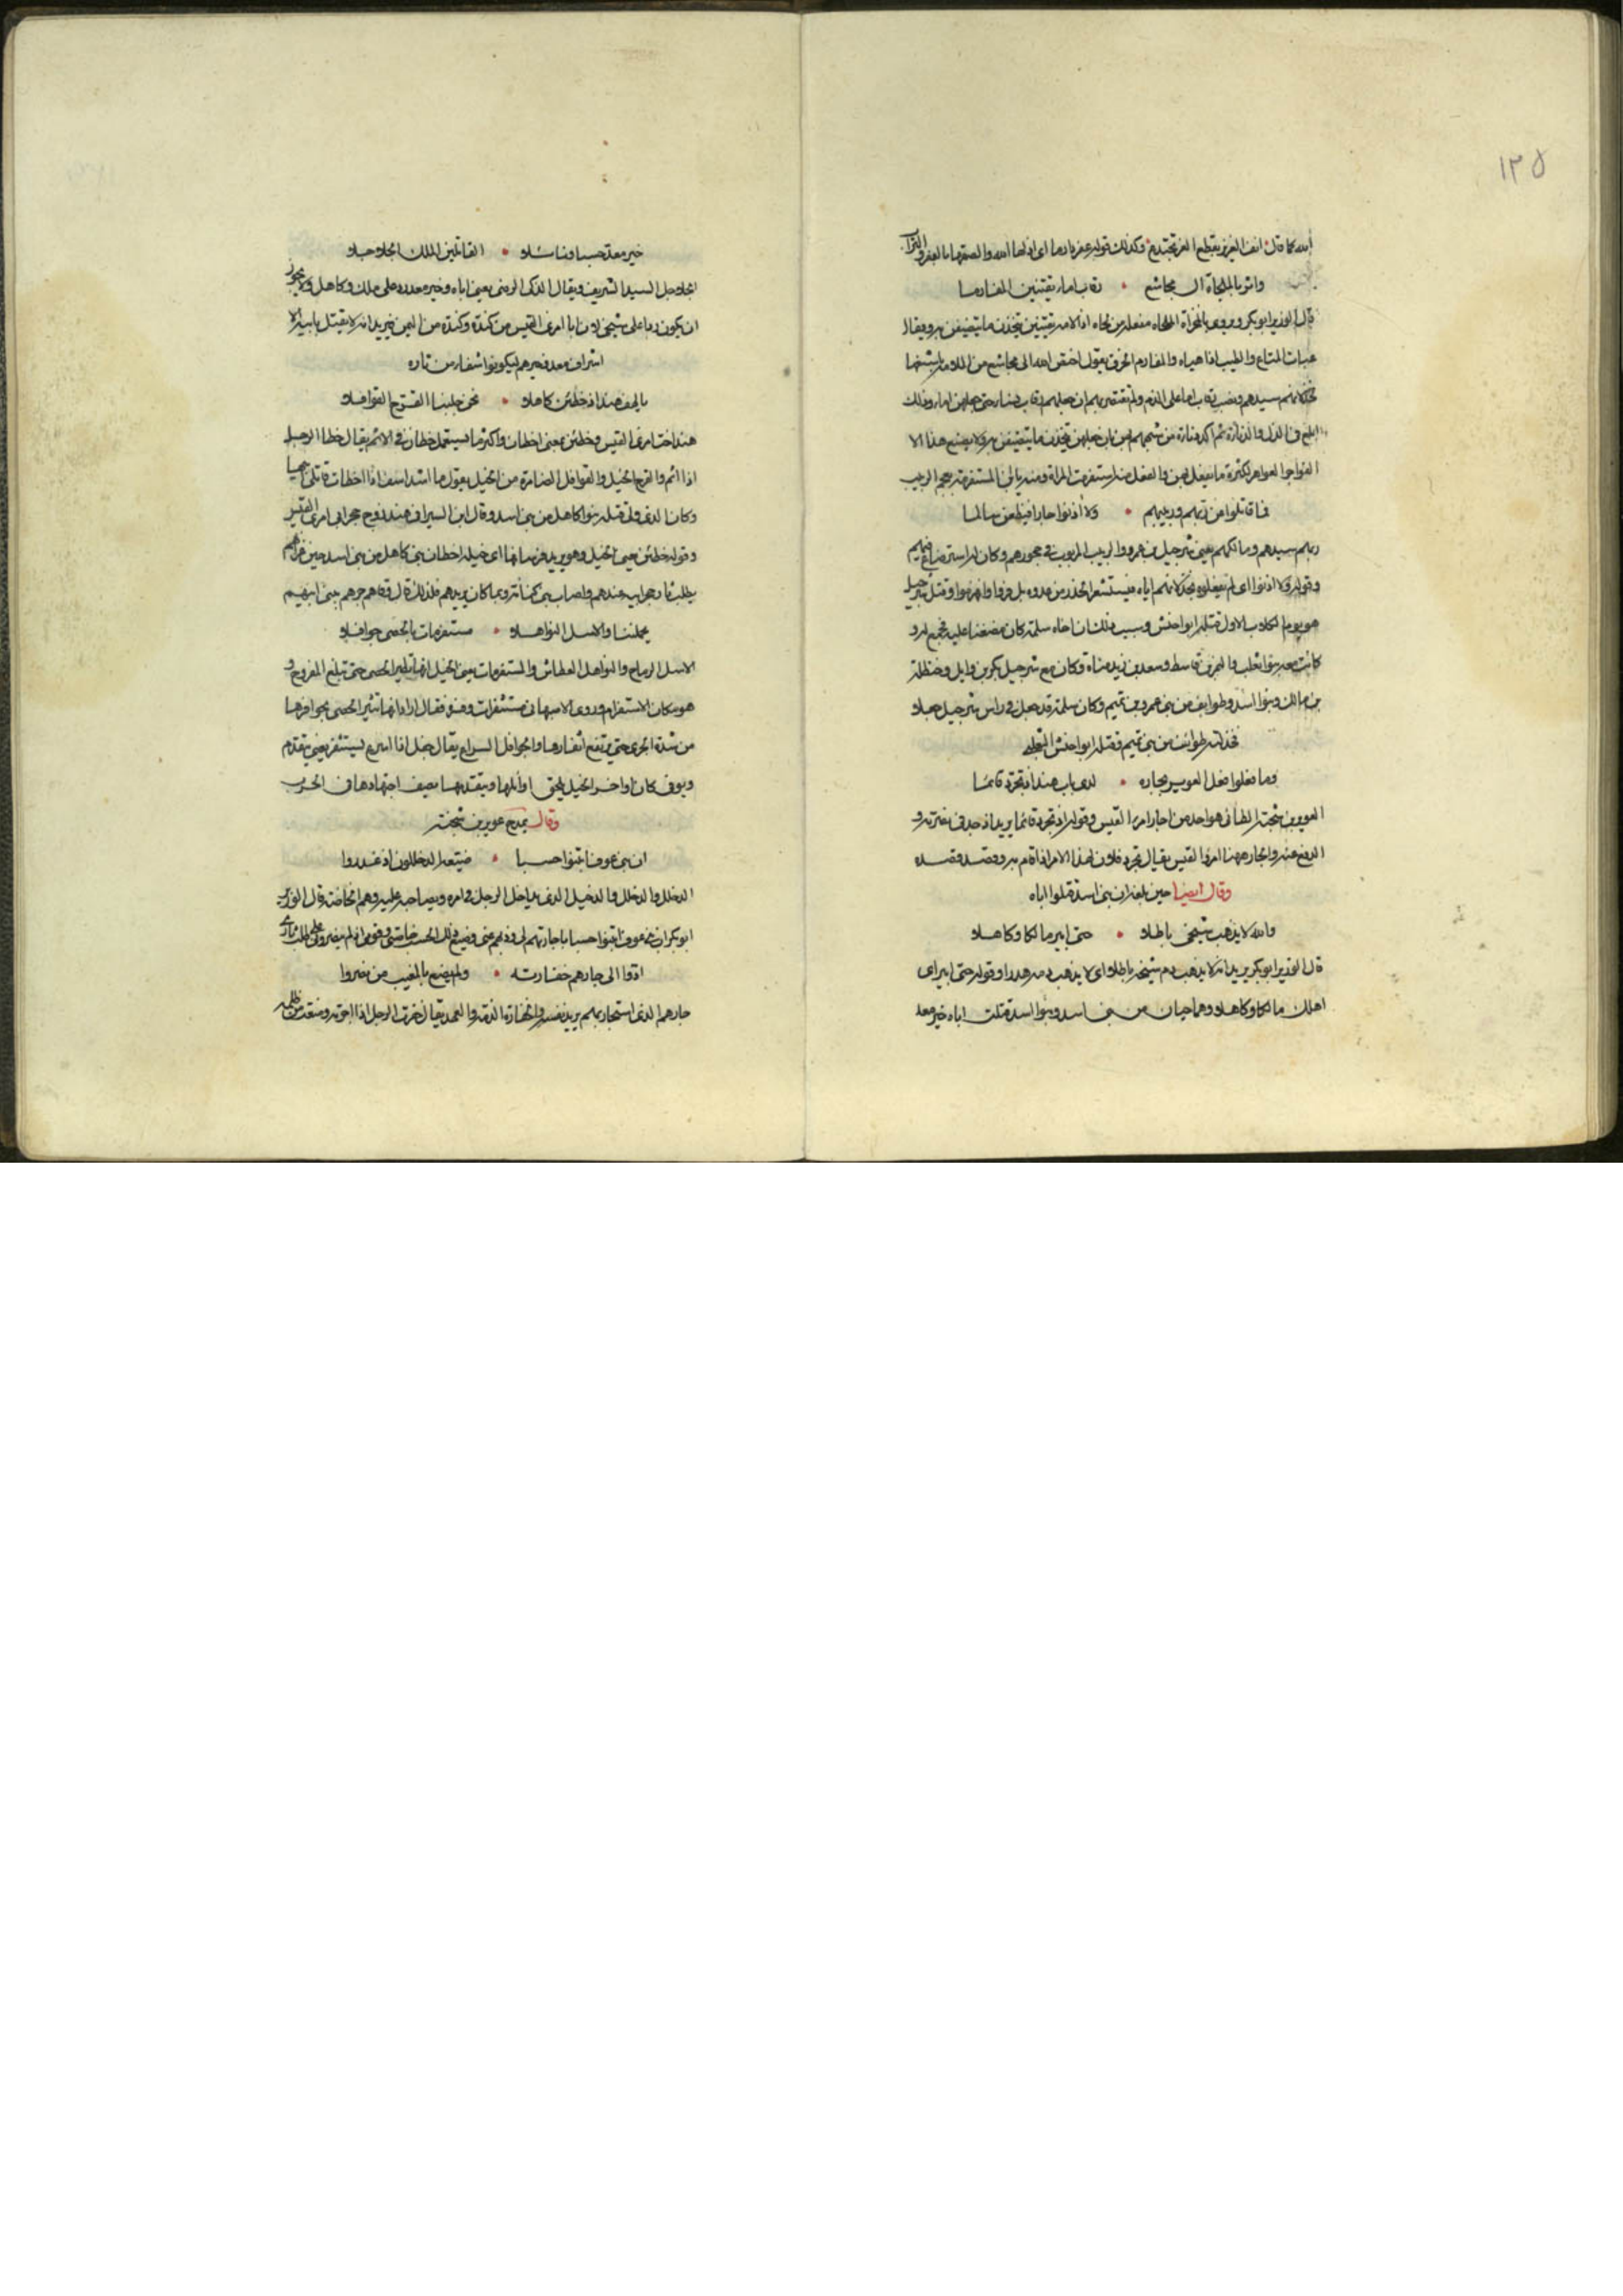 ١٢٥
الله كما قال انف العزيز بقطع العز يجتدع وكذلك قوله عفر دارما اى اذلها الله والصقها بالعفر والتراب
واثر بالملحاة آل مجاشع • رقاب اماء يقتنين المفارما
قال الوزير ابوبكر ويروى الملحاة مفعلة من لحاه اذا لامه يقتنين يتخذن ما يتضيقن به ويقال
عبات المتاع والطيب اذا هياه والمفارم الخرق يقول اختص الله آل مجاشع من الملامة
ابلغ فى الذل
فما قاتلوا عن ربهم وربيبهم • ولا آذنوا جارا فيظعن سالما
ربهم سيدهم ومالكهم يعنى شرحبيل بن عمرو والربيب المربوب فى حجورهم وكان له استرضاع فيهم
وقوله ولا آذنوا اى لم يعلموه بخذلانهم اياه فيستشعر الحذر من عدوه بل فروا وانهزموا وقتل شرحبيل
هو يوم الكلاب الاول قتله ابو احنش وسبب ذلك ان اخاه سلمة كان مضغنا عليه فجمع له و
كانت معه بنوا تغلب والنمر بن قاسط وسعد بن زيد مناة وكان مع شرحبيل بكر بن وايل وحنظلة
بن مالك وبنوا اسد وطوايف من بنى عمرو بن تميم وكان سلمة قد جعل فى راس شرحبيل جعلا
فخذلته طوائف من بنى تميم فقتله ابو احنش التغلبى
وما فعلوا فعل العوير بجاره • لدى باب هند اذ تجرد قائما
العوير بن شجنة الطائى هو احد من اجار امرا القيس وقوله اذ تجرد قائما يريد اذ جد فى نصرته و
الدفع عنه والجار ههنا امرؤ القيس يقال تجرد فلان لهذا الامر اذا قام به وقصد قصده
وقال ايضا حين بلغه ان بنى اسد قتلوا اباه
والله لا يذهب شيخى باطلا • حتى ابير مالكا وكاهلا
قال الوزير ابوبكر يريد انه لا يذهب دم شيخه باطلا اى لا يذهب دمه هدرا وقوله حتى ابير اى
اهلك مالكا وكاهلا وهما حيان من بنى اسد وبنوا اسد قتلت اباه خير معد
خير معد حسبا ونائلا • القاتلين الملك الحلاحلا
الحلاحل السيد الشريف ويقال الذكى الرضى يعنى اباه وخير معد رده على مالك وكاهل ولا يجوز
ان يكون ردا على شيخى لان ابا امرئ القيس من كندة وكندة من اليمن يريد انه لا يقتل بابيه الا
اشراف معد وخيرهم ليكونوا شفاء من ثاره
يا لهف هند اذ خطئن كاهلا • نحن جلبنا القرح القوافلا
هند اخت امرئ القيس وخطئن بمعنى اخطان واكثر ما يستعمل خطا فى الاثم يقال خطا الرجل
اذا اثم والقرح الخيل والقوافل الضامرة من الخيل يقول ما اشد اسف اذا اخطات قاتلى
وكان الذى ولى قتله بنوا كاهل من بنى اسد وقال ابن السيرافى هند زوج حجر ابى امرئ القيس
وقوله خطئن يعنى الخيل وهو يريد فرسانها اى خيله اخطان بنى كاهل من بنى اسد حين غزاهم
يطلب ثار حجر ابيه عندهم واصاب بنى كنانة وما كان يريدهم فلذلك قال وقاهم جدهم ببنى ابيهم
يحملننا والاسل النواهلا • مستفرمات بالحصى جوافلا
الاسل الرماح والنواهل العطاش والمستفرمات يعنى الخيل انها تطير الحصى حتى تبلغ الفروج و
هو مكان الاستفرام وروى الاصبهانى مستثفرات وفسره فقال اراد انها تثير الحصى بحوافرها
من شدة الجرى حتى يرتفع اثفارها والجوافل السراع يقال جفل اذا اسرع
ويوفى كان اواخر الخيل يلحق اوائلها ويتقدمها يصف اجتهادها فى الحرب
وقال يمدح عوير بن شجنة
ان بنى عوف ابتنوا حسبا • ضيعه الدخللون اذ غدروا
الدخلل والدخلل والدخيل الذى يداخل الرجل فى امره ويصاحبه عليه وهم الخاصة قال الوزير
ابوبكر ان بنى عوف ابتنوا حسبا باجارتهم لى وذبهم عنى وضيع ذلك الحسب خاصتى وقومى اذ لم ينصرونى على طلب ثارى
ادوا الى جارهم خفارته • ولم يضع بالمغيب من نصروا
جارهم الذى استجار بهم يريد نفسه والخفارة الذمة والعهد يقال خفرت الرجل اذا اجرته ومنعته من ظلمه